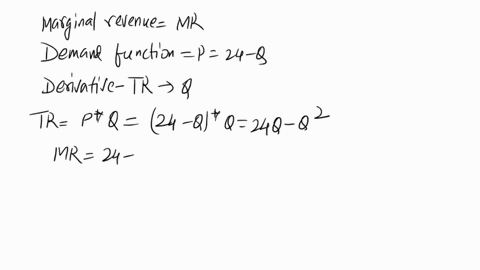 Marginal revenue= MR
Demand function = P= 24-Q
Derivative-TR → Q
TR= P*Q = (24-Q)*Q = 24Q-Q²
MR= 24-